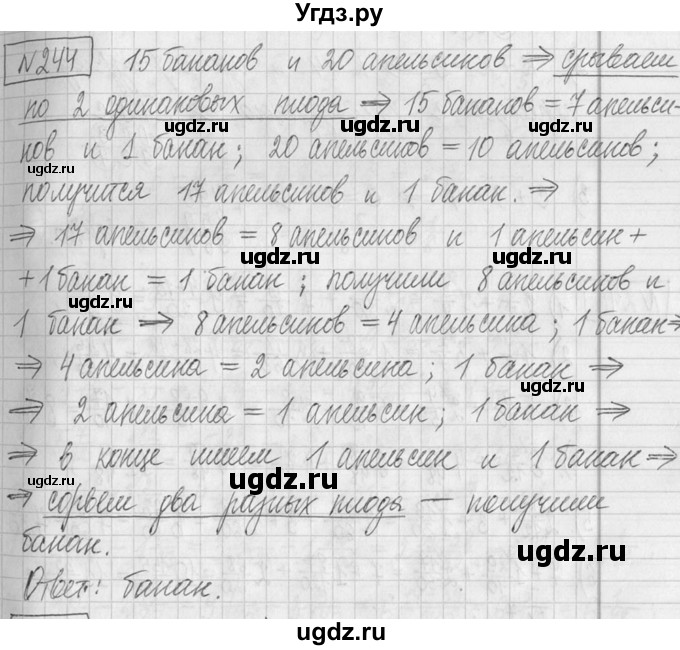 Угдз.ру
№244 15 бананов и 20 апельсинов ⇒ срываем
по 2 одинаковых плода ⇒ 15 бананов = 7 апельси-
ugdz.ru ugdz.ru
нов и 1 банан; 20 апельсинов = 10 апельсинов;
ugdz.ru ugdz.ru
получится 17 апельсинов и 1 банан. ⇒
⇒ 17 апельсинов = 8 апельсинов и 1 апельсин +
ugdz.ru ugdz.ru
+ 1 банан = 1 банан; получили 8 апельсинов и
ugdz.ru
1 банан ⇒ 8 апельсинов = 4 апельсина; 1 банан ⇒
ugdz.ru ugdz.ru
⇒ 4 апельсина = 2 апельсина; 1 банан ⇒
ugdz.ru
⇒ 2 апельсина = 1 апельсин; 1 банан ⇒
ugdz.ru
⇒ в конце имеем 1 апельсин и 1 банан ⇒
ugdz.ru ugdz.ru
⇒ сорвем два разных плода — получим
ugdz.ru
банан.
ugdz.ru
Ответ: банан.
ugdz.ru
ugdz.ru